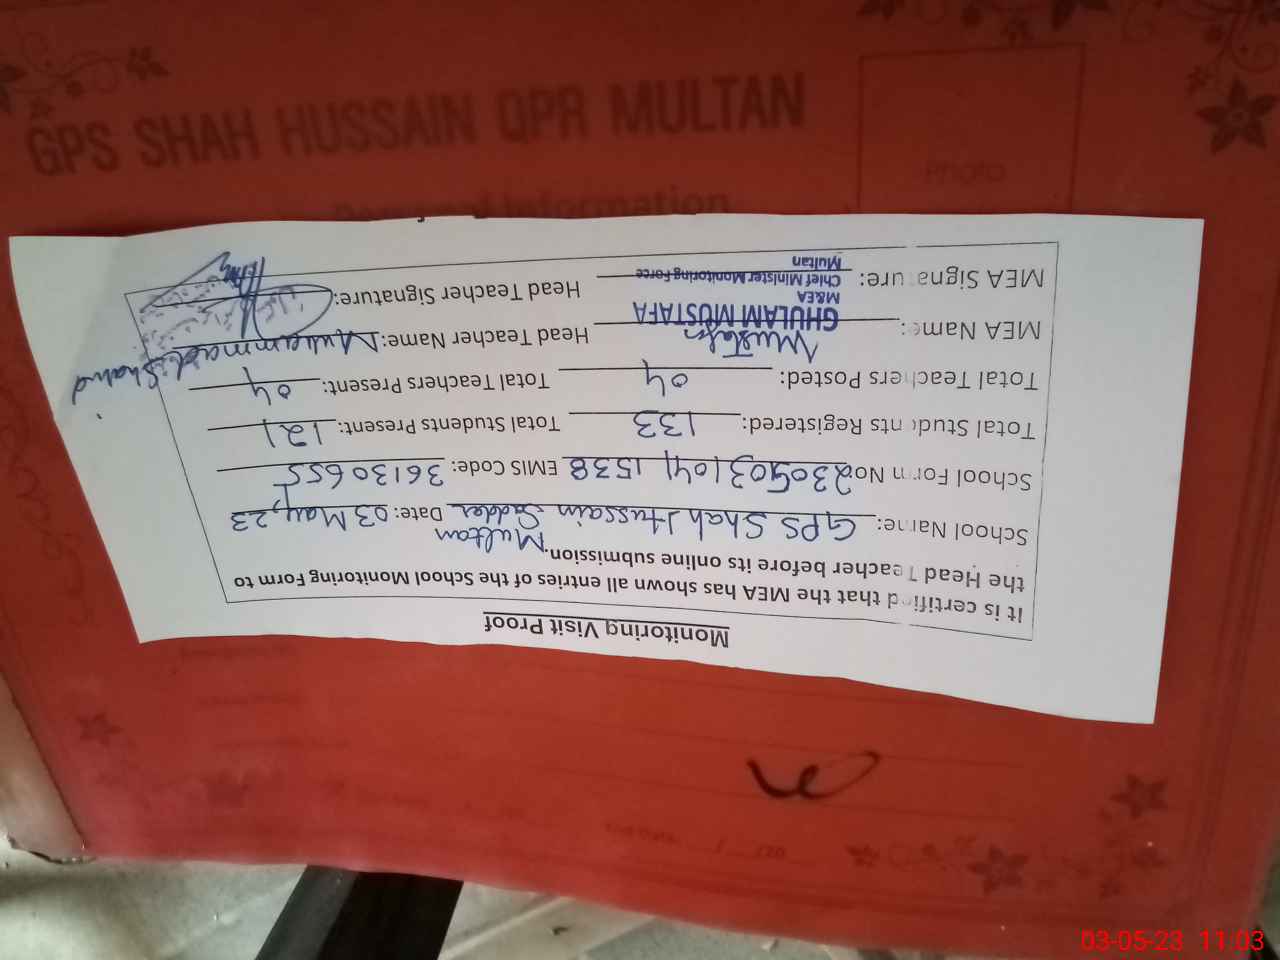 GPS SHAH HUSSAIN QPR MULTAN
Photo
Personal Information
Monitoring Visit Proof
It is certified that the MEA has shown all entries of the School Monitoring Form to
the Head Teacher before its online submission.
School Name: GPS Shah Hussain Sadder Multan Date: 03 May, 23
School Form No: 2305031041 1538 EMIS Code: 36130655
Total Students Registered: 133 Total Students Present: 121
Total Teachers Posted: 04 Total Teachers Present: 04
MEA Name: Mustafa Head Teacher Name: Muhammad Shahid
GHULAM MUSTAFA
M&EA
Chief Minister Monitoring Force
Multan
MEA Signature: Head Teacher Signature:
03-05-23 11:03